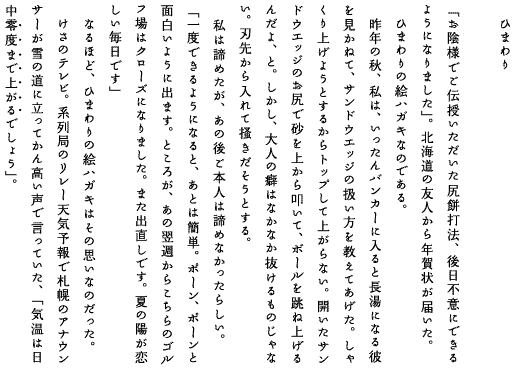 ひまわり
「お陰様でご伝授いただいた尻餅打法、後日不意にできる
ようになりました」。北海道の友人から年賀状が届いた。
ひまわりの絵ハガキなのである。
昨年の秋、私は、いったんバンカーに入ると長湯になる彼
を見かねて、サンドウエッジの扱い方を教えてあげた。しゃ
くり上げようとするからトップして上がらない。開いたサン
ドウエッジのお尻で砂を上から叩いて、ボールを跳ね上げる
んだよ、と。しかし、大人の癖はなかなか抜けるものじゃな
い。刃先から入れて掻きだそうとする。
私は諦めたが、あの後ご本人は諦めなかったらしい。
「一度できるようになると、あとは簡単。ポーン、ポーンと
面白いように出ます。ところが、あの翌週からこちらのゴル
フ場はクローズになりました。また出直しです。夏の陽が恋
しい毎日です」
なるほど、ひまわりの絵ハガキはその思いなのだった。
けさのテレビ。系列局のリレー天気予報で札幌のアナウン
サーが雪の道に立ってかん高い声で言っていた、「気温は日
中零度まで上がるでしょう」。